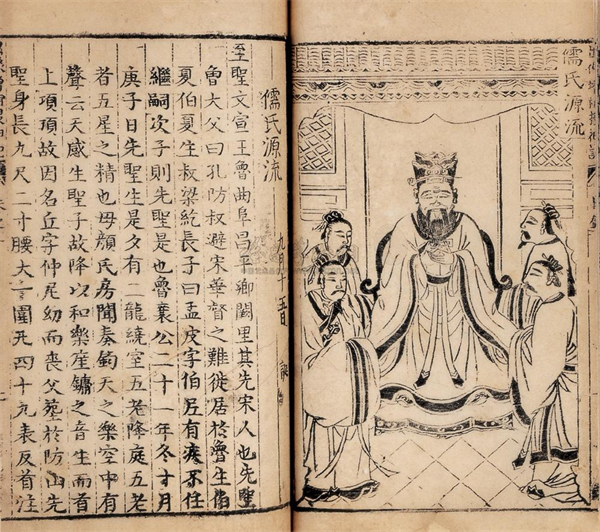 儒氏源流
儒氏源流
九月十五日
至聖文宣王魯曲阜昌平鄉闕里其先宋人也先聖
魯大父曰孔防叔避宋華督之難徙居於魯生伯
夏伯夏生叔梁紇長子曰孟皮字伯尼有疾不任
繼嗣次子則先聖是也魯襄公二十一年冬十月
庚子日先聖生是夕有二龍繞室五老降庭五老
者五星之精也毋顏氏房聞奏鈞天之樂空中有
聲云天感生聖子故降以和樂笙鏞之音生而首
上項頂故因名丘字仲尼幼而喪父葬於防山先
聖身長九尺二寸腰大十圍凡四十九表反首洼